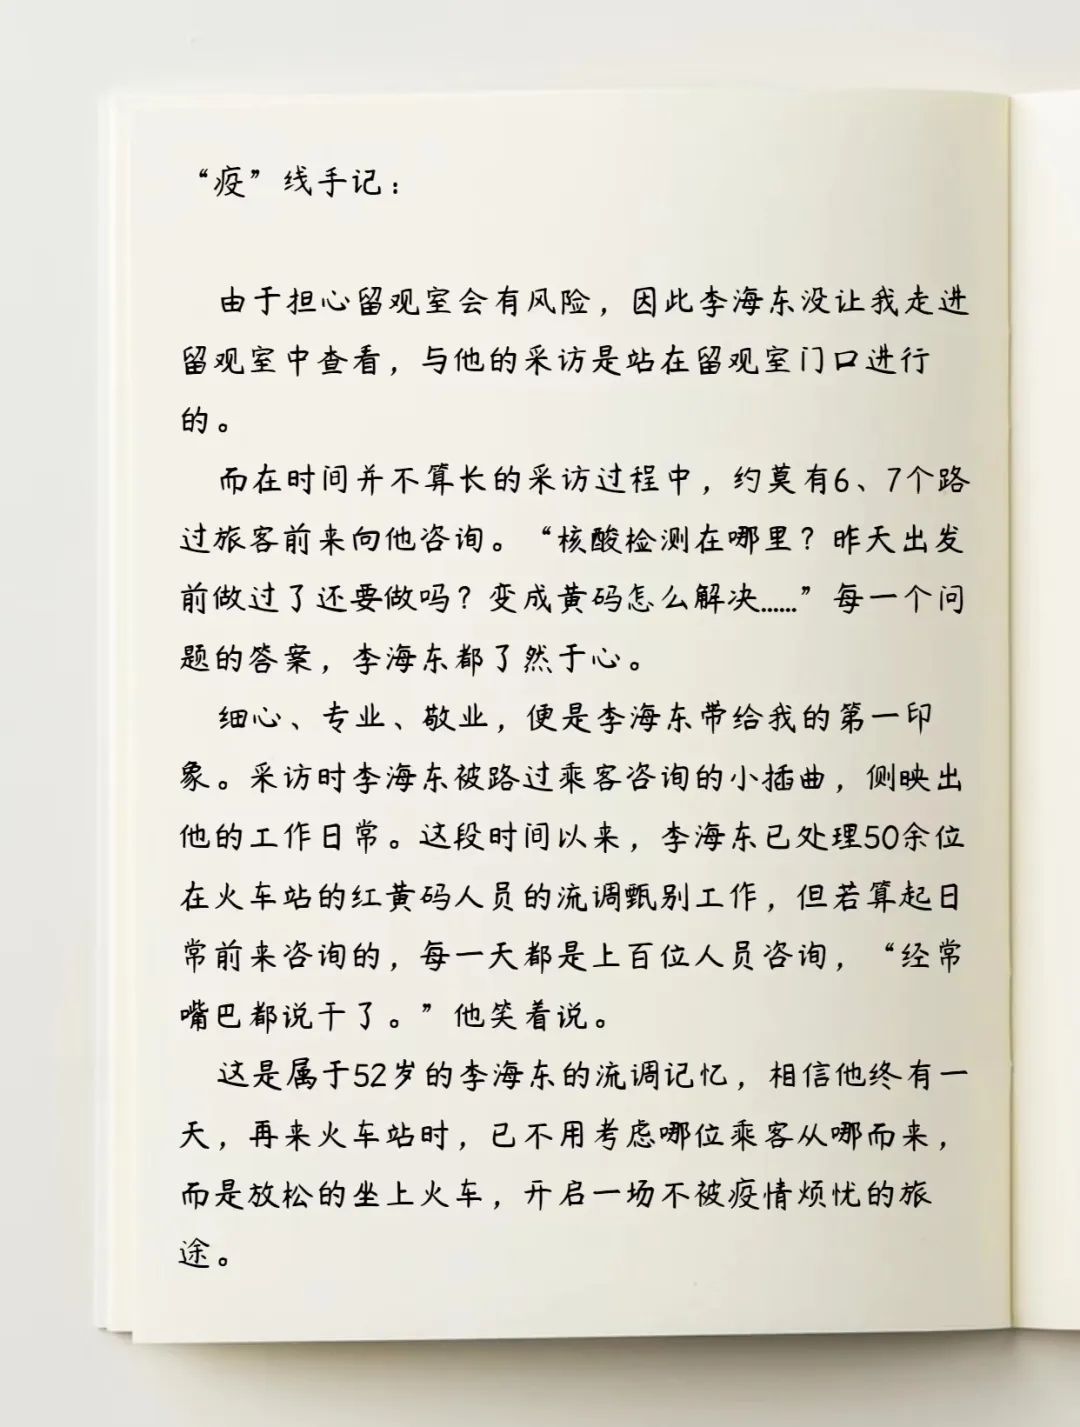 “疫”线手记：
由于担心留观室会有风险，因此李海东没让我走进
留观室中查看，与他的采访是站在留观室门口进行
的。
而在时间并不算长的采访过程中，约莫有6、7个路
过旅客前来向他咨询。“核酸检测在哪里？昨天出发
前做过了还要做吗？变成黄码怎么解决……”每一个问
题的答案，李海东都了然于心。
细心、专业、敬业，便是李海东带给我的第一印
象。采访时李海东被路过乘客咨询的小插曲，侧映出
他的工作日常。这段时间以来，李海东已处理50余位
在火车站的红黄码人员的流调甄别工作，但若算起日
常前来咨询的，每一天都是上百位人员咨询，“经常
嘴巴都说干了。”他笑着说。
这是属于52岁的李海东的流调记忆，相信他终有一
天，再来火车站时，已不用考虑哪位乘客从哪而来，
而是放松的坐上火车，开启一场不被疫情烦忧的旅
途。